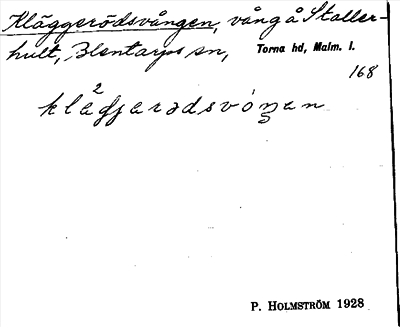 Kläggerödsvången, vång å Staller-
hult, Blentarps sn, Torna hd, Malm. l.
168
klägjarədsvóŋən
P. HOLMSTRÖM 1928